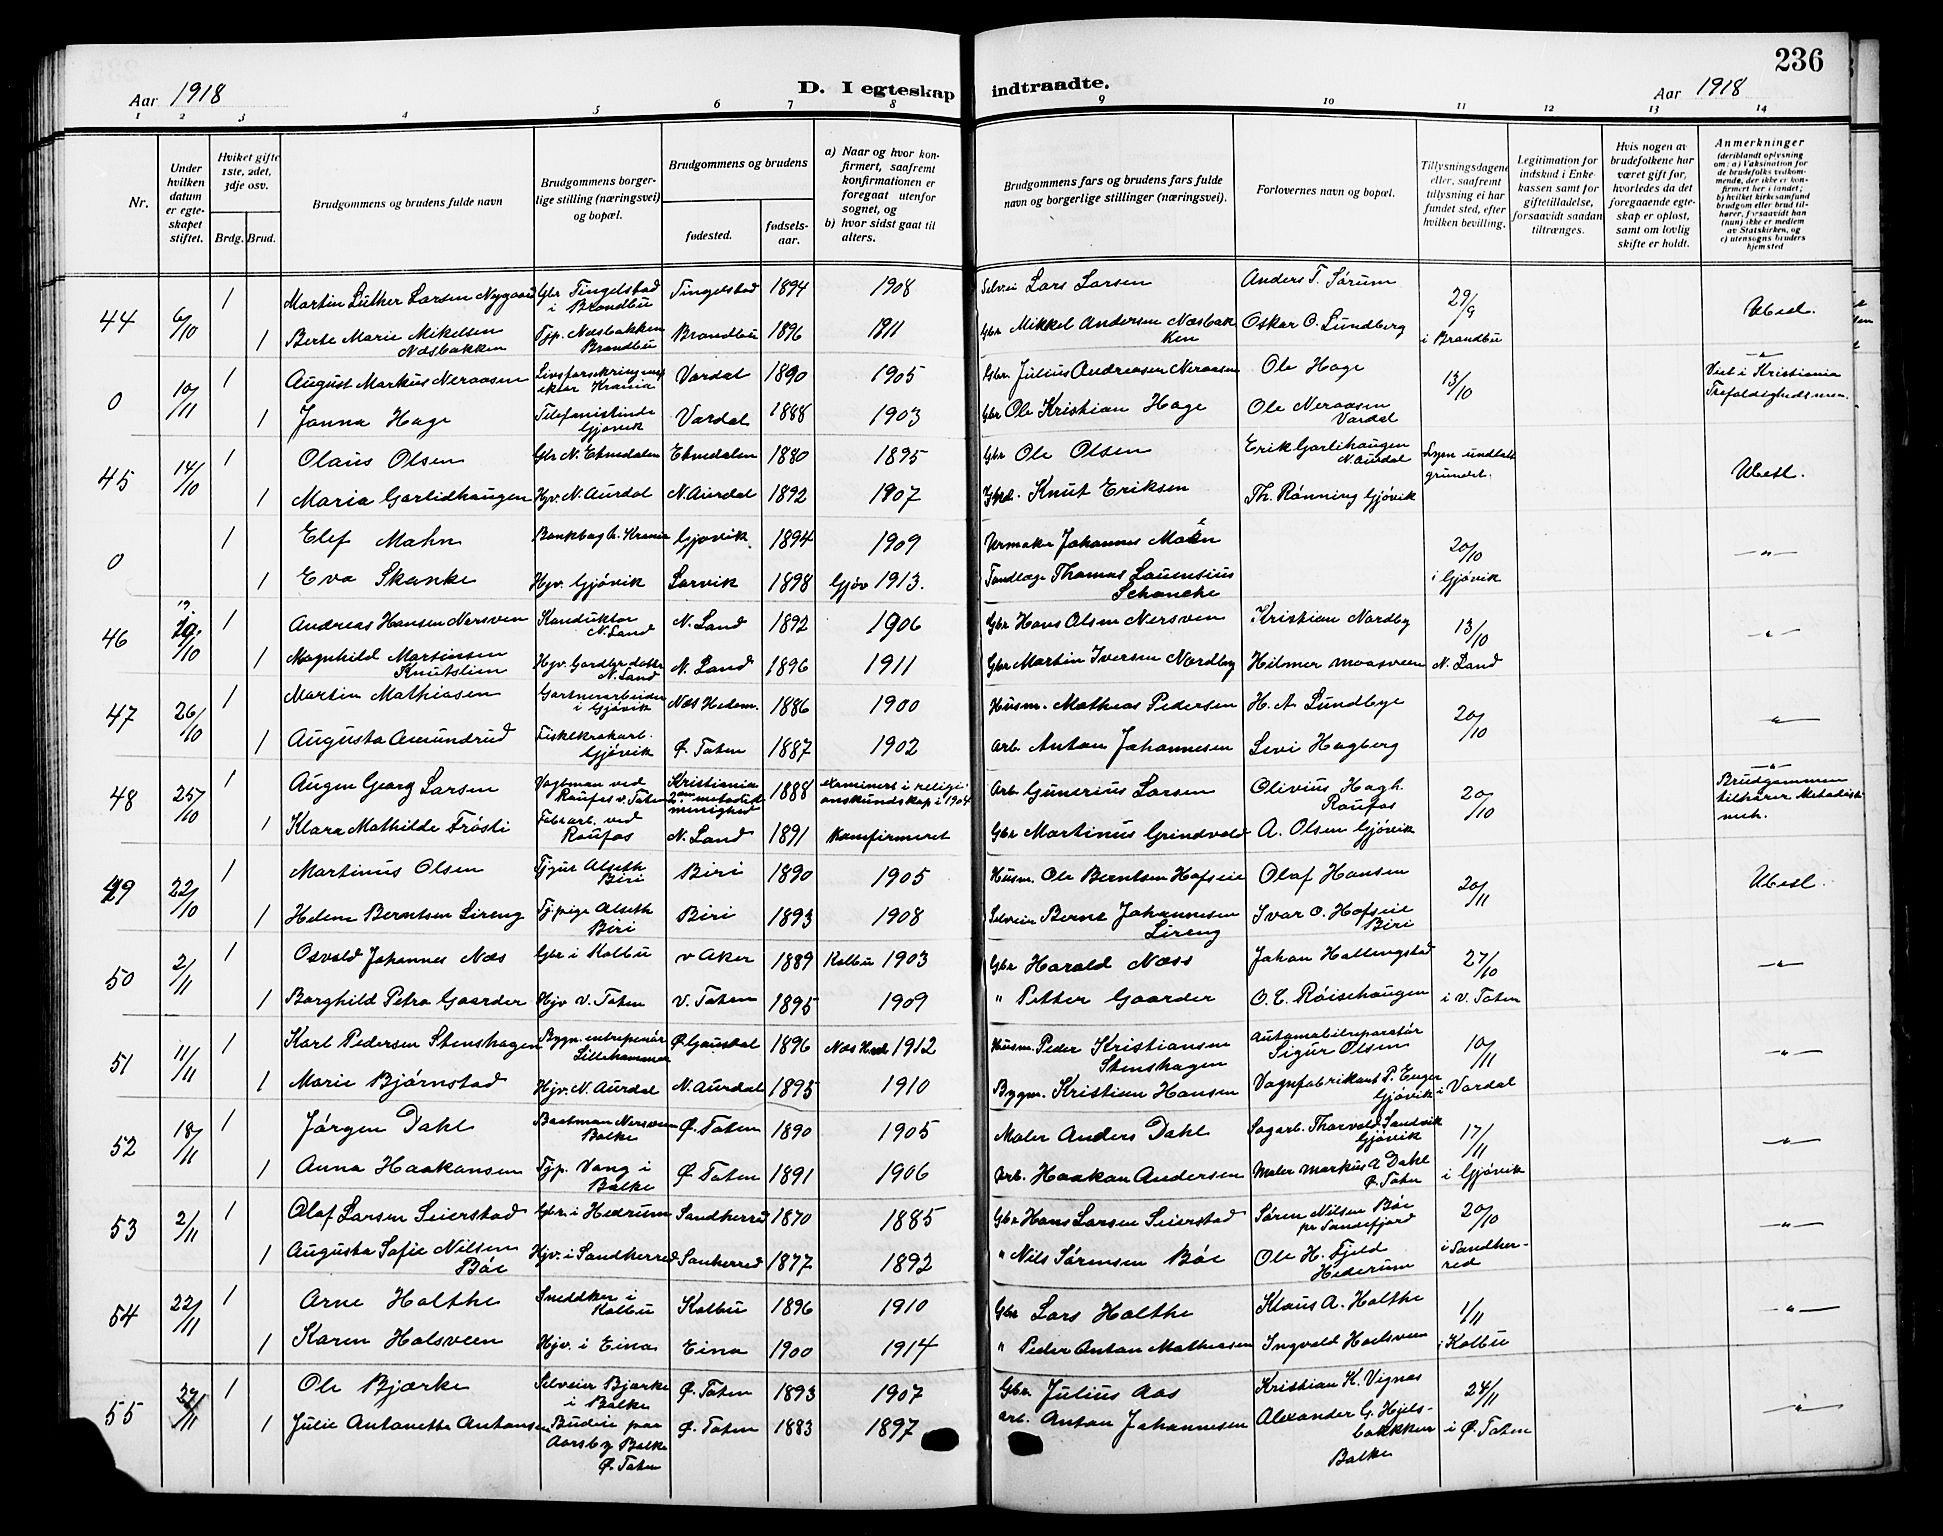 236
Aar 1918
D. I egteskap indtraadte.
Aar 1918
1 2 3 4 5 6 7 8 9 10 11 12 13 14
Nr.
Under hvilken datum er egteskapet stiftet.
Hvilket gifte 1ste, 2det, 3dje osv.
Brdg. Brud.
Brudgommens og brudens fulde navn
Brudgommens borgerlige stilling (næringsvei) og bopæl.
Brudgommens og brudens
fødested.
fødselsaar.
a) Naar og hvor konfirmert, saafremt konfirmationen er foregaat utenfor sognet, og
b) hvor sidst gaat til alters.
Brudgommens fars og brudens fars fulde navn og borgerlige stillinger (næringsvei).
Forlovernes navn og bopæl.
Tillysningsdagene eller, saafremt tillysning ei har fundet sted, efter hvilken bevilling.
Legitimation for indskud i Enkekassen samt for giftetilladelse, forsaavidt saadan tiltrænges.
Hvis nogen av brudefolkene har været gift før, hvorledes da det foregaaende egteskap er opløst, samt om lovlig skifte er holdt.
Anmerkninger (deriblandt oplysning om: a) Vaksination for de brudefolks vedkommende, der ikke er konfirmert her i landet; b) hvilket kirkesamfund brudgom eller brud tilhører, forsaavidt han (hun) ikke er medlem av Statskirken, og c) utensogns bruders hjemsted
44 6/10 1 Martin Luther Larsen Nygaard Gbr Tingelstad i Brandbu Tingelstad 1894 1908 Selvei Lars Larsen Anders T. Sørum 29/9 i Brandbu Ubesl.
1 Berte Marie Mikelsen Næsbakken Tjp. Næsbakken Brandbu Brandbu 1896 1911 Gbr Mikkel Andersen Næsbakken Oskar O. Lundberg
0 10/11 1 August Markus Neraasen Livsforsikringsinspektør Krania Vardal 1890 1905 Gbr. Julius Andreasen Neraasen Ole Hage 13/10 — " — Viet i Kristiania Trefoldighedsmen.
1 Janna Hage Telefonistinde Gjøvik Vardal 1888 1903 Gbr Ole Kristian Hage Ole Neraasen Vardal
45 14/10 1 Olaus Olsen Gbr N. Etnedalen Etnedalen 1880 1895 Gbr Ole Olsen Erik Garlihaugen N. Aurdal Lysn undlatt grundet. Ubesl.
1 Maria Garlidhaugen Hjv. N. Aurdal N. Aurdal 1892 1907 Gbr. Knut Eriksen Th. Rønning Gjøvik
0 1 Elef Mahn Bankbogh. Krania Gjøvik 1894 1909 Urmaker Johannes Moen 20/10 i Gjøvik — " —
1 Eva Skanke Hjv. Gjøvik Larvik 1898 Gjøv 1913. Tandlæge Thomas Laurentius Schancke
46 19/10 1 Andreas Hansen Nersven Konduktør N. Land N. Land 1892 1906 Gbr Hans Olsen Nersven Kristian Nordby 13/10 N. Land — " —
1 Magnhild Martinsen Knutslien Hjv. Gardbr.datter N. Land N. Land 1896 1911 Gbr Martin Iversen Nordby Hilmer Moasveen
47 26/10 1 Martin Mathiasen Gartnerarbeider i Gjøvik Næs Hedem. 1886 1900 Husm. Mathias Pedersen H. A Lundbye 20/10 — " —
1 Augusta Amundrud Fiskekrokarb. Gjøvik Ø. Toten 1887 1902 Arb. Anton Johannesen Levi Hagberg
48 25/10 1 Augen Georg Larsen Vagtman ved Raufos v. Toten Kristiania 2. metodistmenighed 1888 examinert i religionskundskap i 1904 Arb. Gunerius Larsen Olivius Hagh. Raufos 20/10 — " — Brudgommen tilhører Metodistmeh.
1 Klara Mathilde Frøsti Fabr.arb. ved Raufos N. Land 1891 Konfirmeret Gbr Martinus Grindvold A. Olsen Gjøvik
49 22/10 1 Martinus Olsen Tjgut Alseth Biri Biri 1890 1905 Husm. Ole Berntsen Hofseie Olaf Hansen 20/11 Ubesl.
1 Helene Berntsen Lireng Tj.pige Alseth Biri Biri 1893 1908 Selveier Bernt Johannesen Lireng Ivar O. Hofseie Biri
50 2/11 1 Osvald Johannes Næs Gbr i Kolbu v Aker 1889 Kolbu 1903 Gbr Harald Næss Johan Hallingstad 27/10 i V. Toten — " —
1 Borghild Petra Gaarder Hjv V. Toten V. Toten 1895 1909 " Petter Gaarder O. C. Røisehaugen
51 11/11 1 Karl Pedersen Stenshagen Bygn.entreprenør Lillehammer Ø Gausdal 1896 Næs Hed 1912 Husm. Peder Kristiansen Stenshagen Automobilreparatør Sigur Olsen 10/11 i Vardal — " —
1 Marie Bjørnstad Hjv. N. Aurdal N. Aurdal 1895 1910 Bygm. Kristian Hansen Vognfabrikant P. Enger Gjøvik
52 18/11 1 Jørgen Dahl Baatman Nersveen Balke Ø. Toten 1890 1905 Maler Anders Dahl Sagarb. Thorvald Sandvik Gjøvik 17/11 i Gjøvik — " —
1 Anna Haakonsen Tjp. Vang i Balke Ø. Toten 1891 1906 Arb. Haakon Andersen Maler Markus A Dahl Ø. Toten
53 2/11 1 Olaf Larsen Seierstad Gbr. i Hedrum Sandherred 1870 1885 Gbr Hans Larsen Seierstad Søren Nilsen Bøe pr Sandefjord 20/10 i Sandherred — " —
1 Augusta Sofie Nilsen Bøe Hjv. i Sandherred Sanherred 1877 1892 " Nils Sørensen Bøe Ole H. Fjeld Hederum
54 22/11 1 Arne Holthe Snedker i Kolbu Kolbu 1896 1910 Gbr Lars Holthe Klaus A. Holthe 1/11 i Kolbu — " —
1 Karen Halsveen Hjv. i Eina Eina 1900 1914 " Peder Anton Mathiasen Ingvald Hoelsveen
55 1 Ole Bjærke Selveier Bjærke i Balke Ø. Toten 1893 1907 Gbr. Julius Aas Kristian K. Vignas 24/11 i Ø. Toten — " —
1 Julie Antonette Antonsen Budeie paa Aarsby Balke Ø. Toten Ø. Toten 1883 1897 Arb. Anton Johannesen Alexander G. Hjelsbakkken Balke